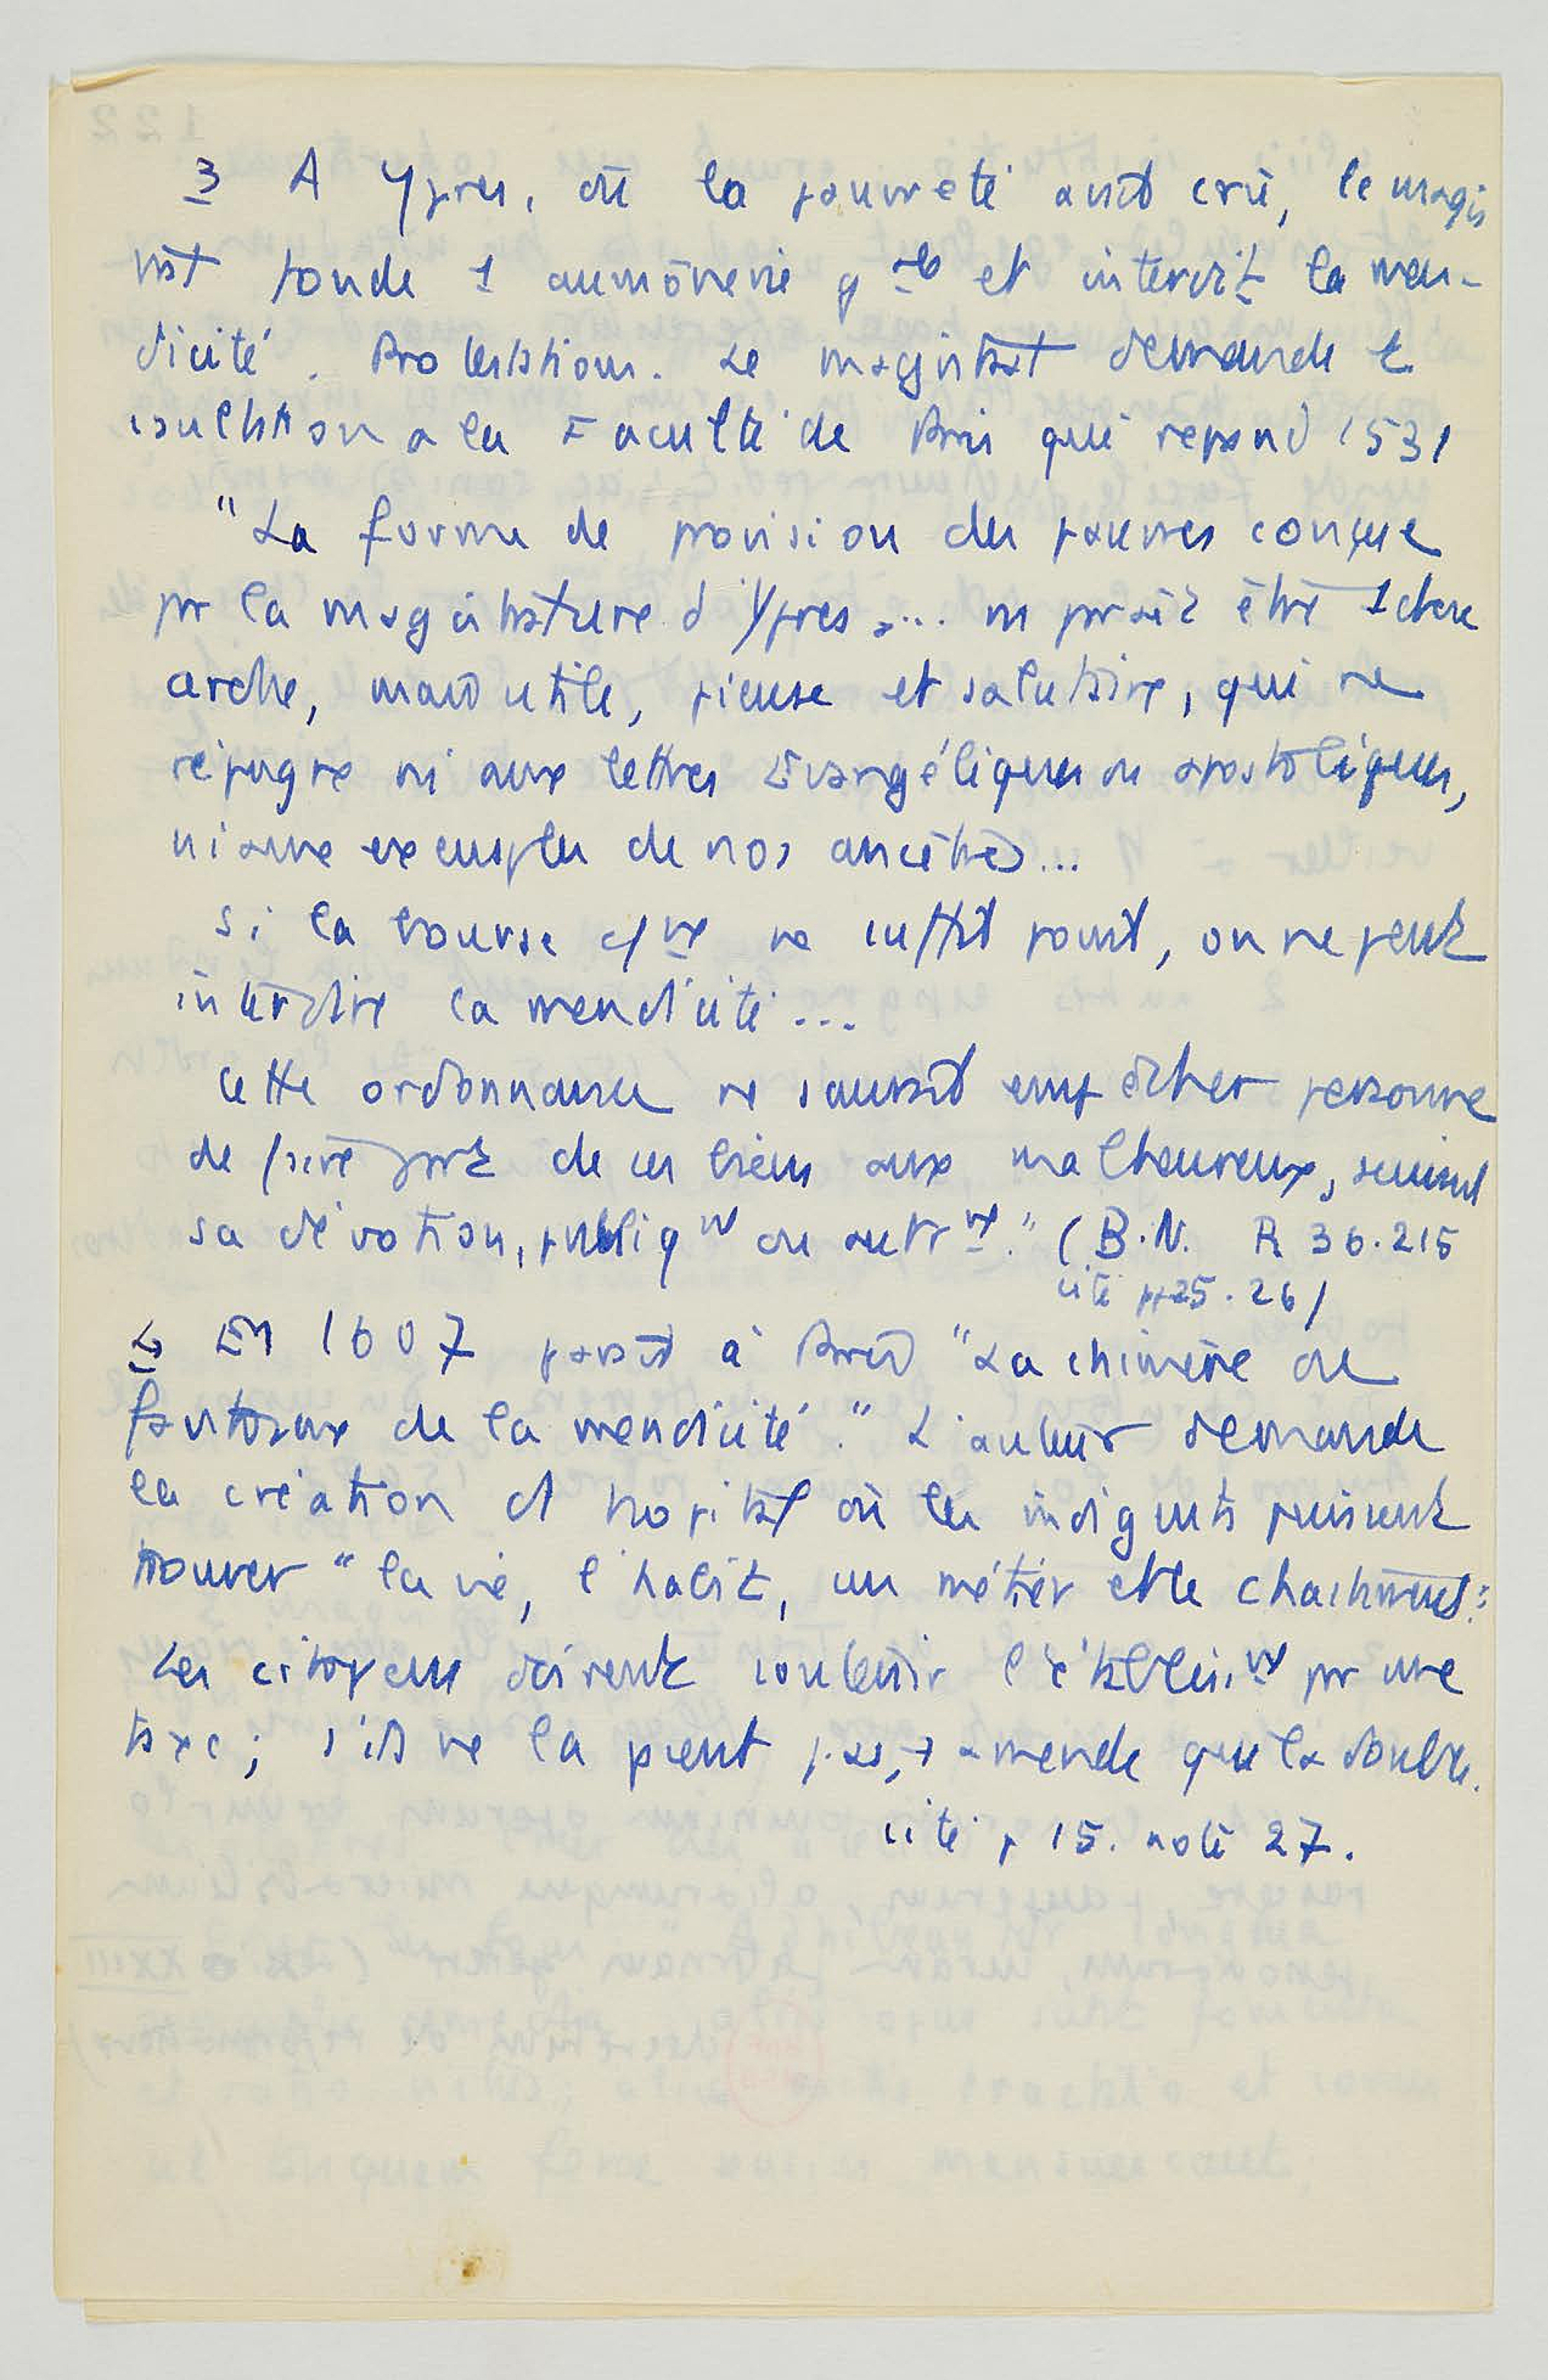 3 A Ypres, où la pauvreté avait crû, le magis
trat fonde 1 aumônerie g^rale et interdit la men-
dicité. Protestations. Le magistrat demande
consultation a la Faculté de Paris qui répond 1531
"La forme de provision des pauvres conçue
par la magistrature d'Ypres ... paraît être 1 chose
mais utile, pieuse et salutaire, qui ne
répugne ni aux lettres Evangéliques ou apostoliques,
ni aux exemples de nos ancêtres...
Si la bourse c/ne ne suffit point, on ne peut
interdire la mendicité...
Cette ordonnance ne saurait empêcher personne
de faire part de ses biens aux malheureux, suivant
sa dévotion, publiq^nt ou autr^nt." (B.N. R 36.215
cité pp 25.26)
4 En 1607 paraît à Paris "La chimère ou
fantosme de la mendicité." L'auteur demande
la création d'hopital où les indigents puissent
trouver "la vie, l'habit, un métier et le chastiment".
Les citoyens doivent soutenir l'établiss^nt par une
taxe; s'ils ne la paient pas, → amende qui la double.
cité p 15. note 27.